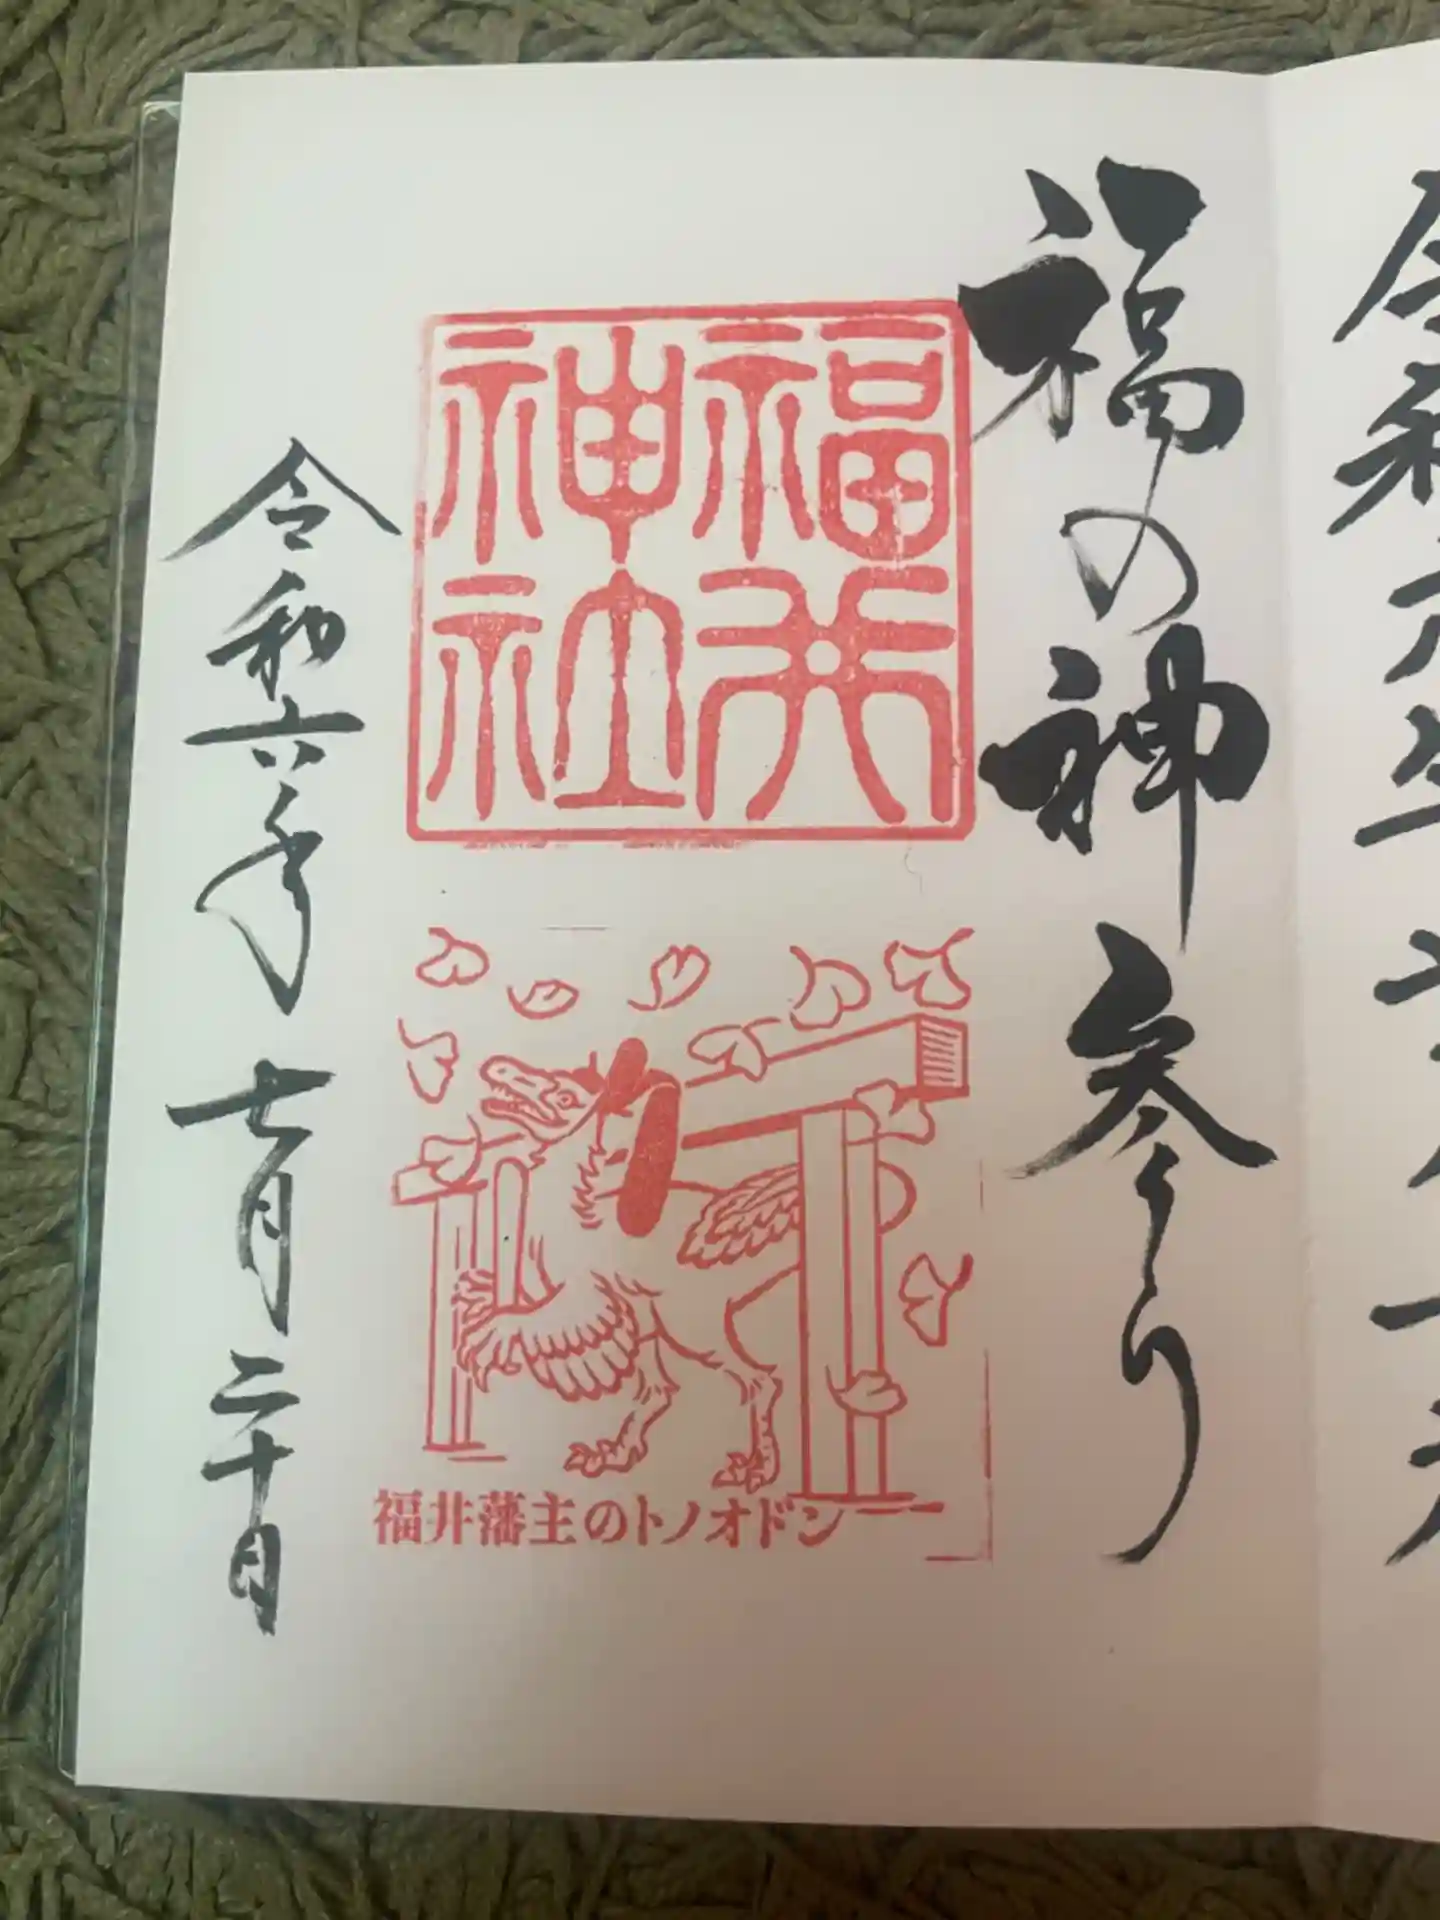 福の神参り
福井
神社
福井藩主のトノオドン
令和六年七月二十日